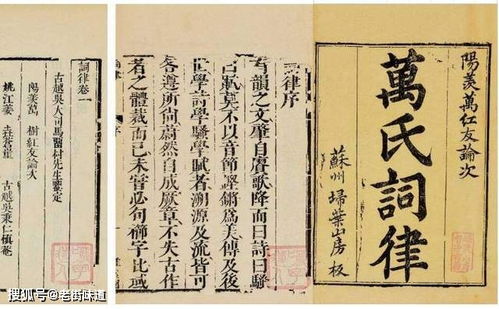 陽羨萬紅友論次
萬氏詞律
蘇州掃葉山房板
律序
韻之文肇自賡歌降而曰詩曰騷
莫不以音節鏗鏘爲美傳及後
世學詩學騷學賦者溯源及流皆可
各遵所尚蔚然自成厥章不失古作
者之體裁而已未嘗必句櫛字比域
詞律卷一
古越吳大司馬留村先生鑒定
陽羨萬 樹紅友論次
姚江姜 垚蒼崖 古越吳秉仁慎菴
搜狐号@老街味道